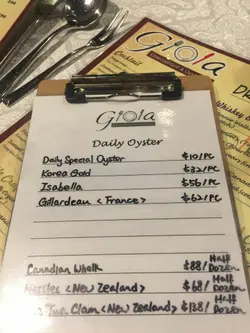 Giola
Cocktail
Whiskey &
Giola
Daily Oyster
Daily Special Oyster $10/PC
Korea Gold $32/PC
Isabella $56/PC
Gillardeau <France> $62/PC
Canadian Whelk $88/ Half Dozen
<New Zealand> $68/ Half Dozen
Clam <New Zealand> $138/ Half Dozen